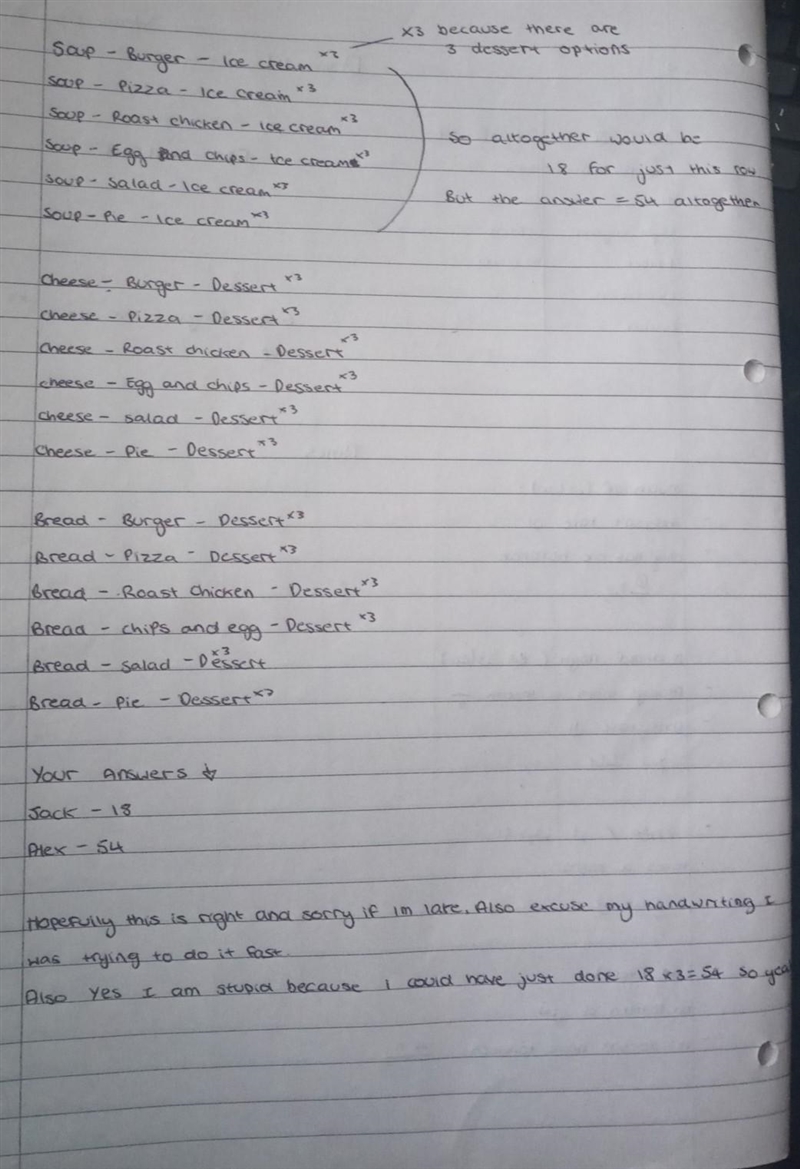 x3 because there are
3 dessert options
Soup - Burger - Ice cream x3
Soup - Pizza - Ice cream x3
Soup - Roast chicken - Ice cream x3
Soup - Egg and chips - Ice cream x3
Soup - Salad - Ice cream x3
Soup - Pie - Ice cream x3
So altogether would be
18 for just this row
But the answer = 54 altogether
Cheese - Burger - Dessert x3
Cheese - Pizza - Dessert x3
Cheese - Roast chicken - Dessert x3
Cheese - Egg and chips - Dessert x3
Cheese - Salad - Dessert x3
Cheese - Pie - Dessert x3
Bread - Burger - Dessert x3
Bread - Pizza - Dessert x3
Bread - Roast chicken - Dessert x3
Bread - chips and egg - Dessert x3
Bread - Salad - Dessert x3
Bread - Pie - Dessert x3
Your Answers ↓
Jack - 18
Alex - 54
Hopefully this is right and sorry if im late. Also excuse my handwriting I
was trying to do it fast.
Also yes I am stupid because I could have just done 18 x 3 = 54 so yea